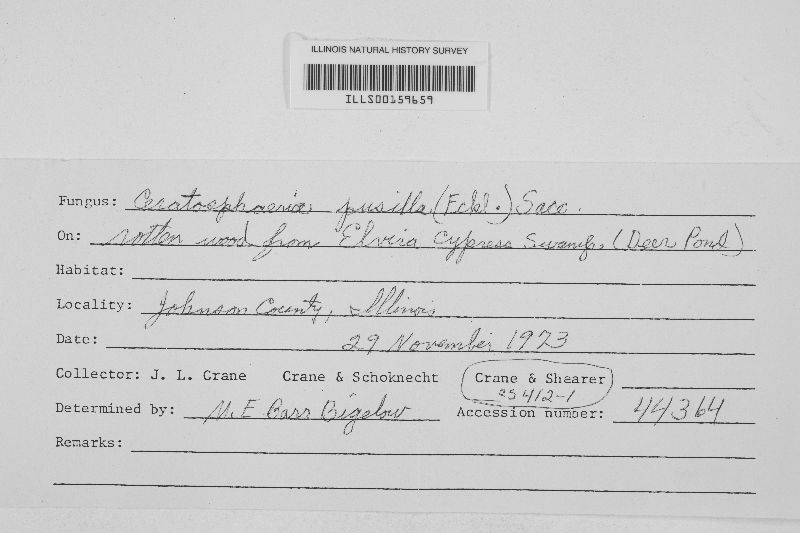 ILLINOIS NATURAL HISTORY SURVEY
ILLS00159659
Fungus: Ceratosphaeria pusilla (Fckl.) Sacc.
On: rotten wood from Elvira Cypress Swamp. (Deer Pond)
Habitat:
Locality: Johnson County, Illinois
Date: 29 November 1973
Collector: J. L. Crane Crane & Schoknecht Crane & Shearer
CS 412-1
Determined by: M. E Barr Bigelow Accession number: 44364
Remarks: